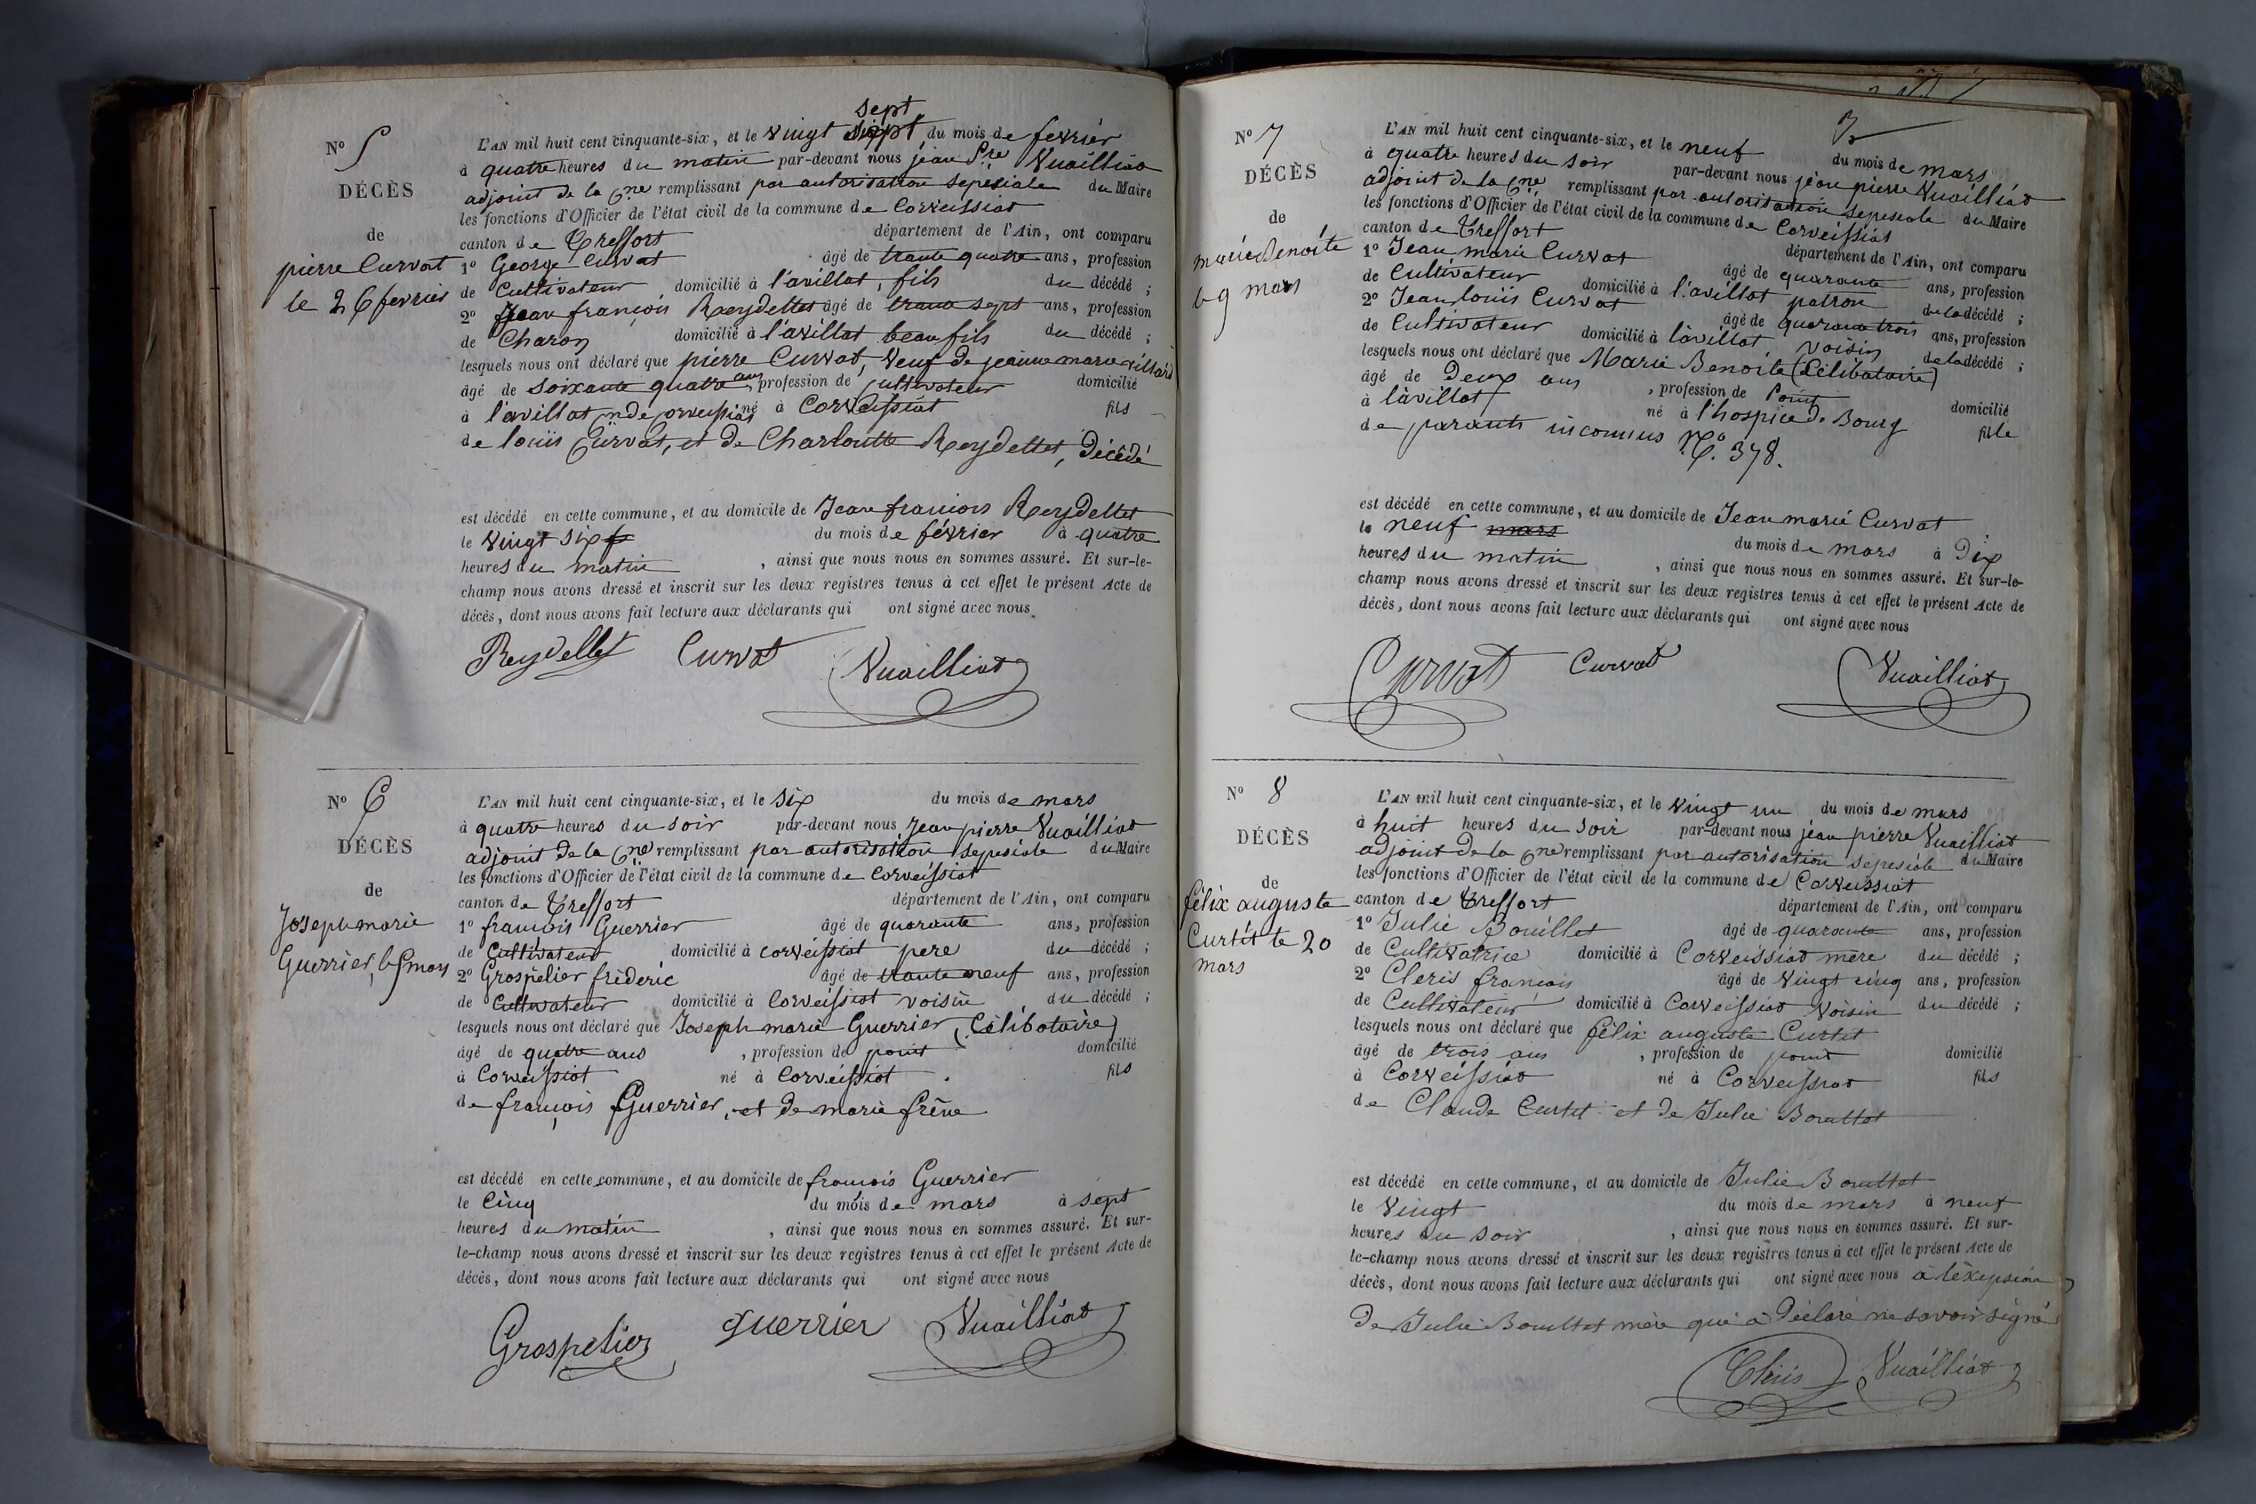 N.o 5
DÉCÈS
de
pierre Curvat
le 26 fevrier
sept
L'AN mil huit cent cinquante-six, et le vingt du mois de fevrier
à quatre heures du matin par-devant nous jéan Pre Vuailliat
adjoint de la Cne remplissant par autorisation sepesiale du Maire
les fonctions d'Officier de l'état civil de la commune de Corveissiat
canton de Treffort département de l'Ain, ont comparu
1o George Curvat âgé de trante quatre ans, profession
de Cultivateur domicilié à l'avillat, fils du décédé ;
2o Jean françois Reydellet âgé de trante sept ans, profession
de Charon domicilié à l'avillat beau fils du décédé ;
lesquels nous ont déclaré que pierre Curvat, Veuf de jeanne marie
âgé de soixante quatre ans, profession de cultivateur domicilié
à l'avillat né à Corveissiat fils
de louis Curvat, et de Charloutte Reydellet, Décédé
est décédé en cette commune, et au domicile de Jean francois Reydellet
le vingt six du mois de février à quatre
heures du matin, ainsi que nous nous en sommes assuré. Et sur-le-
champ nous avons dressé et inscrit sur les deux registres tenus à cet effet le présent Acte de
décès, dont nous avons fait lecture aux déclarants qui ont signé avec nous
Reydellet Curvat Vuailliat
N.o 6
DÉCÈS
de
Joseph marie
Guerrier, le 5 mars
L'AN mil huit cent cinquante-six, et le six du mois de mars
à quatre heures du soir par-devant nous Jean pierre Vuailliat
adjoint de la Cne remplissant par autorisation sepesiale du Maire
les fonctions d'Officier de l'état civil de la commune de Corveissiat
canton de Treffort département de l'Ain, ont comparu
1o francois Guerrier âgé de quarante ans, profession
de Cultivateur domicilié à corveissiat pere du décédé ;
2o Grospelier fréderic âgé de trante neuf ans, profession
de Cultivateur domicilié à Corveissiat voisin du décédé ;
lesquels nous ont déclaré que Joseph marie Guerrier, (Célibataire)
âgé de quatre ans, profession de point domicilié
à Corveissiat né à Corveissiat fils
de françois Guerrier, et de marie frène
est décédé en cette commune, et au domicile de francois Guerrier
le Cinq du mois de mars à sept
heures du matin, ainsi que nous nous en sommes assuré. Et sur-
le-champ nous avons dressé et inscrit sur les deux registres tenus à cet effet le présent Acte de
décès, dont nous avons fait lecture aux déclarants qui ont signé avec nous
Grospelier guerrier Vuailliat
N.o 7
DÉCÈS
de
marie Benoite
le 9 mars
L'AN mil huit cent cinquante-six, et le neuf du mois de mars
à quatre heures du soir par-devant nous jéan pierre Vuailliat
adjoint de la Cne remplissant par autorisation sepesiale du Maire
les fonctions d'Officier de l'état civil de la commune de Corveissiat
canton de Treffort département de l'Ain, ont comparu
1o Jean marie Curvat âgé de quarante ans, profession
de Cultivateur domicilié à l'avillat patron de la décédé ;
2o Jean louis Curvat âgé de quarante trois ans, profession
de Cultivateur domicilié à l'avillat, voisin de la décédé ;
lesquels nous ont déclaré que Marie Benoite (Célibataire)
âgé de Deux ans, profession de point domicilié
à l'avillat né à l'hospice de Bourg fille
de parants inconnus No. 378.
est décédé en cette commune, et au domicile de Jean marie Curvat
le neuf mars du mois de mars à Dix
heures du matin, ainsi que nous nous en sommes assuré. Et sur-le-
champ nous avons dressé et inscrit sur les deux registres tenus à cet effet le présent Acte de
décès, dont nous avons fait lecture aux déclarants qui ont signé avec nous
Curvat Curvat Vuailliat
N.o 8
DÉCÈS
de
félix auguste
Curtét le 20
mars
L'AN mil huit cent cinquante-six, et le vingt un du mois de mars
à huit heures du soir par-devant nous jéan pierre Vuailliat
adjoint de la Cne remplissant par autorisation sepesiale du Maire
les fonctions d'Officier de l'état civil de la commune de Corveissiat
canton de Treffort département de l'Ain, ont comparu
1o Julie Bouillet âgé de quarante ans, profession
de Cultivatrice domicilié à Corveissiat mère du décédé ;
2o Cleris françois âgé de vingt cinq ans, profession
de Cultivateur domicilié à Corveissiat Voisin du décédé ;
lesquels nous ont déclaré que félix auguste Curtet
âgé de trois ans, profession de point domicilié
à Corveissiat né à Corveissiat fils
de Claude Curtet et de Julie Bouillet
est décédé en cette commune, et au domicile de Julie Bouillet
le vingt du mois de mars à neuf
heures du soir, ainsi que nous nous en sommes assuré. Et sur-
le-champ nous avons dressé et inscrit sur les deux registres tenus à cet effet le présent Acte de
décès, dont nous avons fait lecture aux déclarants qui ont signé avec nous à l'éxepsion
De Julie Bouillet mère qui à Déclaré ne savoir signé
Cléris Vuailliat